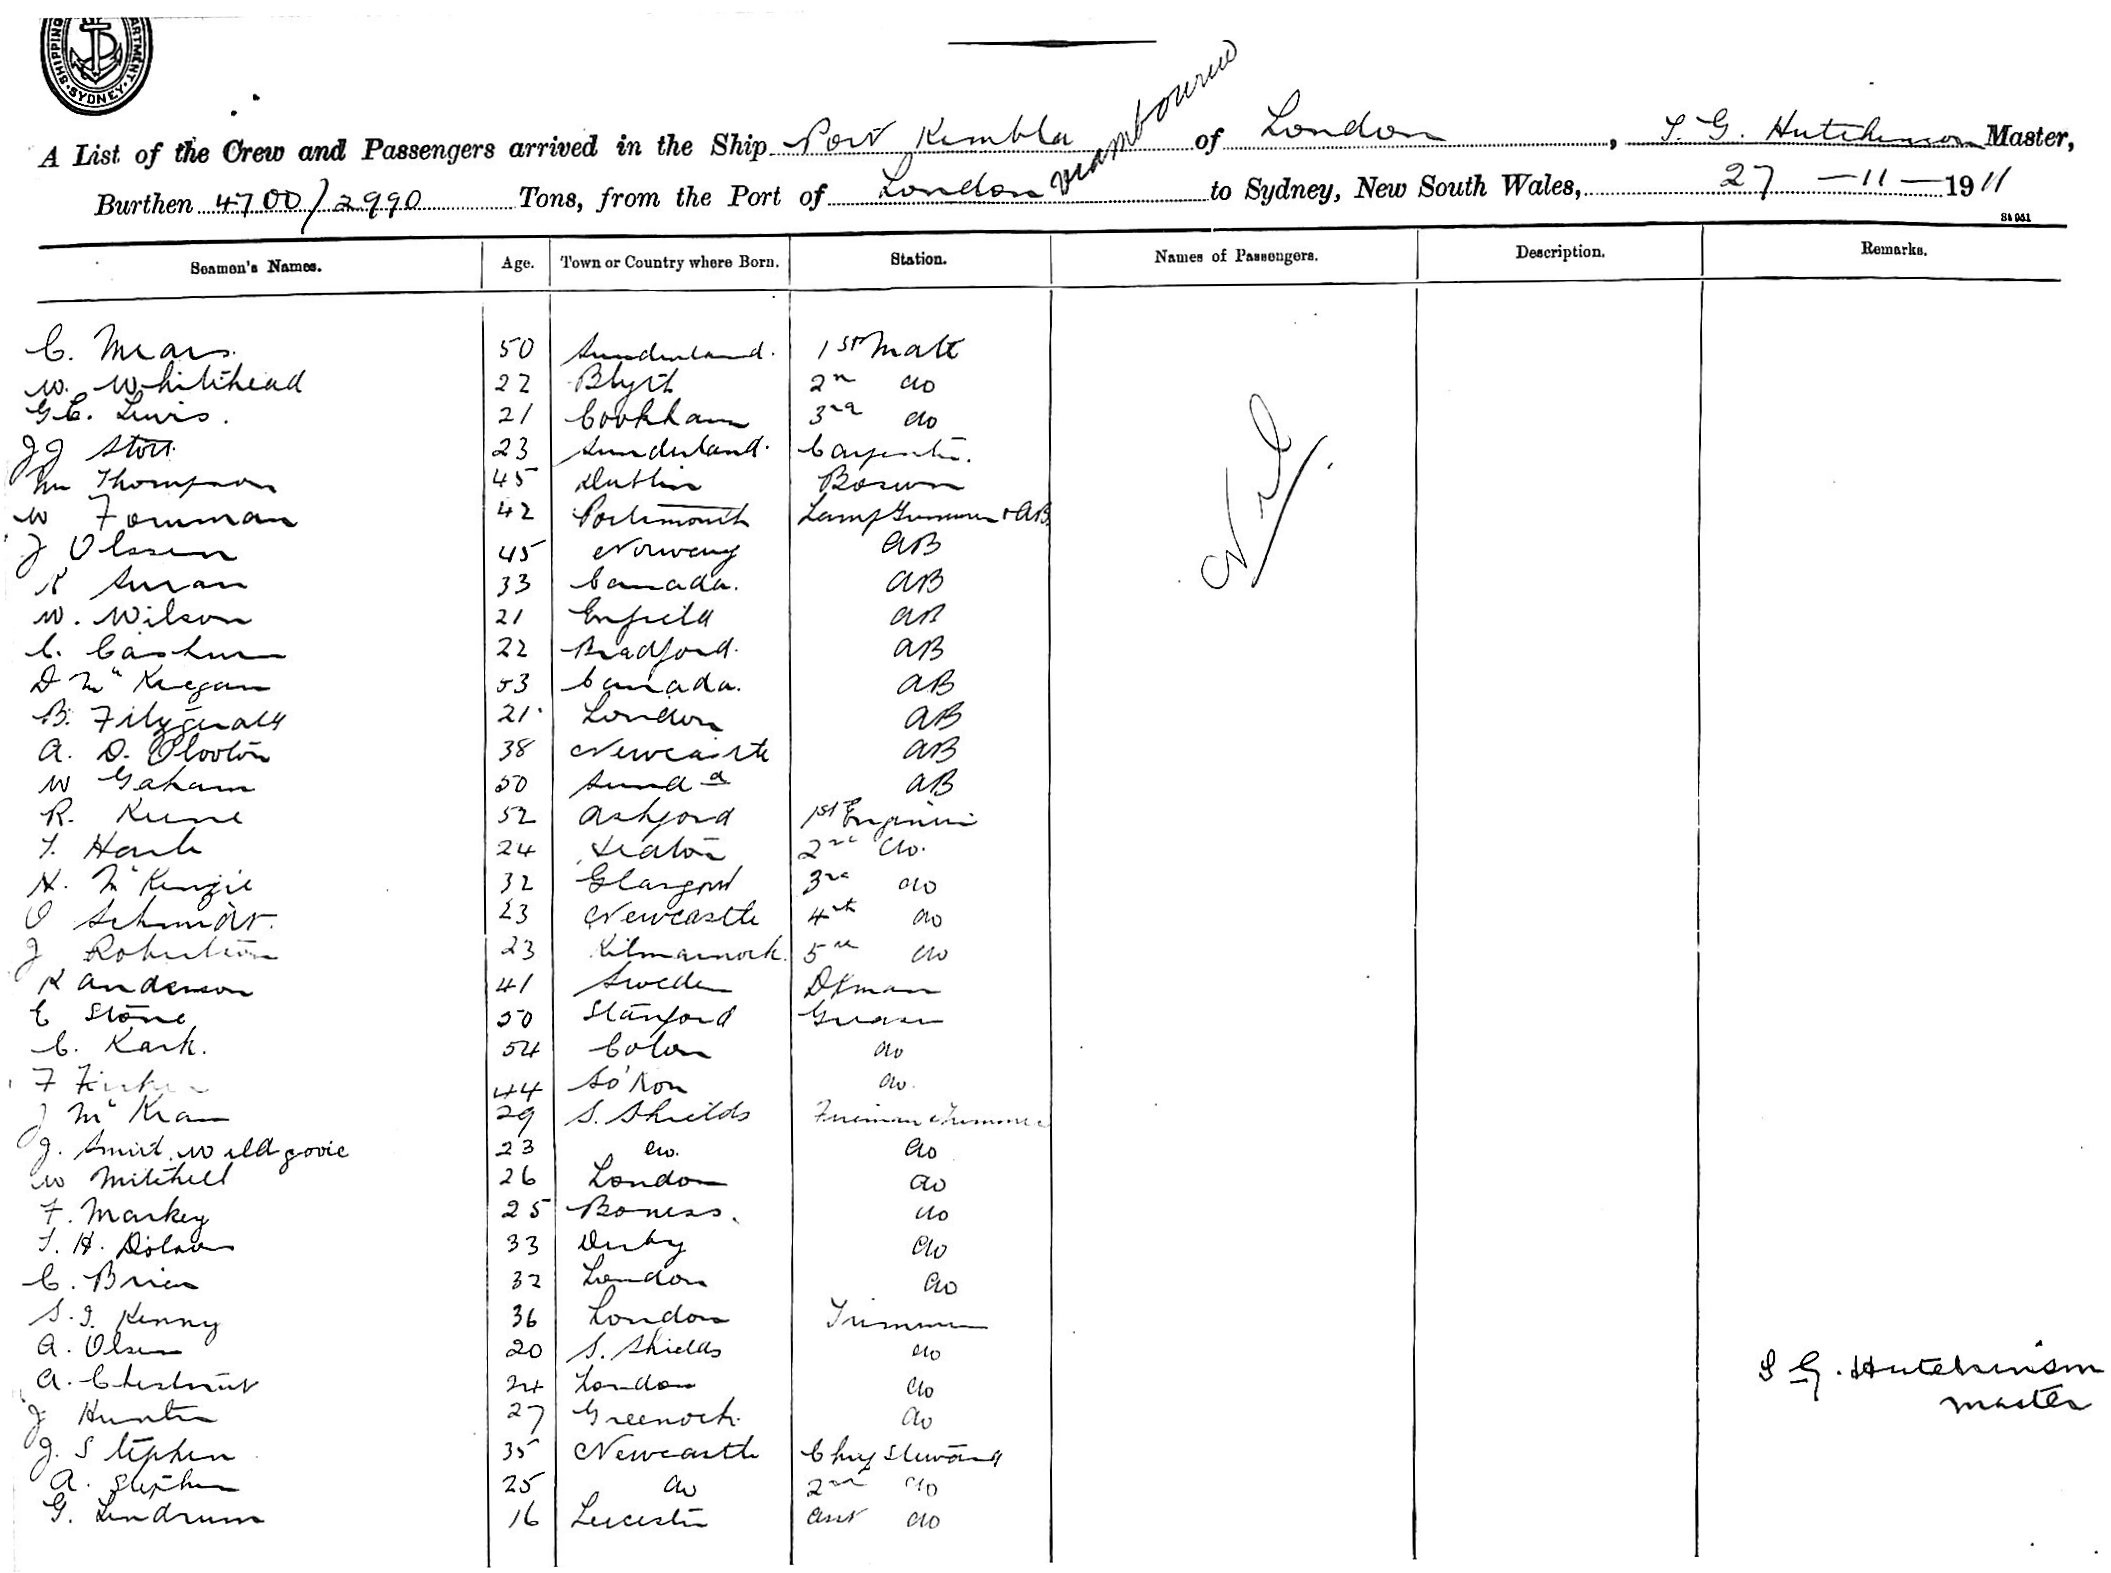 SHIPPING DEPARTMENT SYDNEY
A List of the Crew and Passengers arrived in the Ship Port Kembla of London, S. G. Hutchinson Master,
Burthen 4700/2990 Tons, from the Port of London via Melbourne to Sydney, New South Wales, 27-11-1911
St 951
Seamen's Names. Age. Town or Country where Born. Station. Names of Passengers. Description. Remarks.
C. Mears 50 Sunderland. 1st Mate
W. Whitehead 22 Blyth 2nd do
G.C. Lewis. 21 Cookham 3rd do
J J Stott 23 Sunderland. Carpenter.
Thompson 45 Dublin Bosun
W Foreman 42 Portsmouth Lamptrimmer & AB
J Olssen 45 Norway AB
K 33 Canada. AB
W. Wilson 21 Enfield AB
C. 22 Bradford. AB
D Mc Keegan 53 Canada. AB
B. Fitzgerald 21 London AB
A. D. 38 Newcastle AB
W Gaham 50 Sund d AB
R. Keene 52 Ashford 1st Engineer
T. 24 Seaton 2nd do.
H. McKenzie 32 Glasgow 3rd do
O Schmidt. 23 Newcastle 4th do
J Robertson 23 Kilmarnock 5th do
K Anderson 41 Sweden Dkman
E Stone 50 Greaser
C. Kark. 54 Colon do
F 44 So'ton do.
J Mc 29 S. Shields Fireman & Trimmer
J. 23 do. do
W Mitchell 26 London do
F. Markey 25 Boness. do
T. H. Dolan 33 Derby do
C. Brien 32 London do
S. J. Kenny 36 London Trimmer
A. Olsen 20 S. Shields do
A. Chestnut 24 London do
J Hunter 27 Greenock. do
J. Stephen 35 Newcastle Chief Steward
A. Stephen 25 do 2nd do
G. Lendrum 16 Leicester asst do
Nil
S G. Hutchinson
Master